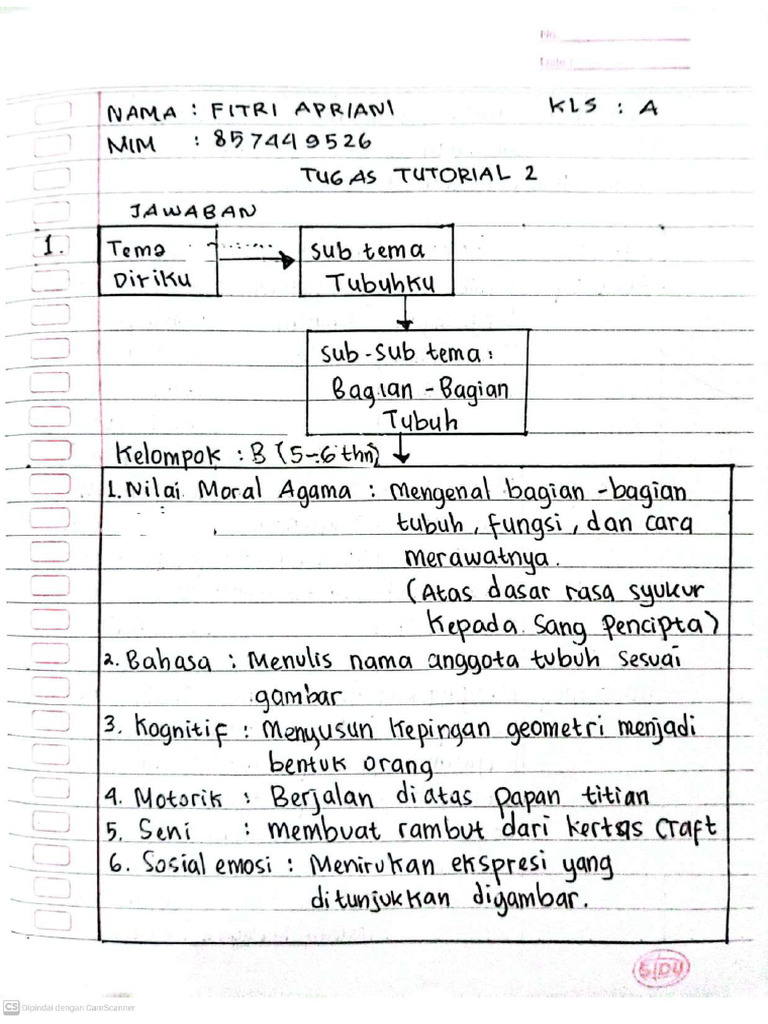 No.
Date :
NAMA : FITRI APRIANI KLS : A
NIM : 857449526
TUGAS TUTORIAL 2
JAWABAN
1. Tema Sub tema
Diriku Tubuhku
Sub-Sub tema :
Bagian - Bagian
Tubuh
Kelompok : B (5-6 thn)
1. Nilai Moral Agama : Mengenal bagian - bagian
tubuh, fungsi, dan cara
merawatnya.
(Atas dasar rasa syukur
kepada Sang Pencipta)
2. Bahasa : Menulis nama anggota tubuh sesuai
gambar
3. Kognitif : Menyusun kepingan geometri menjadi
bentuk orang
4. Motorik : Berjalan diatas papan titian
5. Seni : membuat rambut dari kertas craft
6. Sosial emosi : Menirukan ekspresi yang
ditunjukkan digambar.
SIDU
CS Dipindai dengan CamScanner